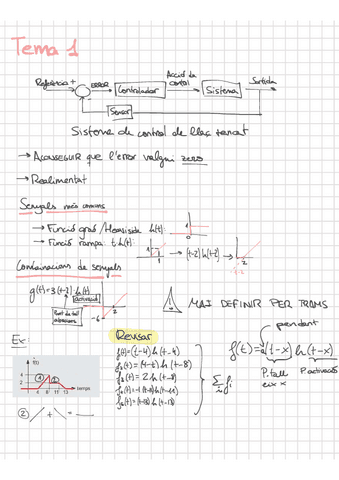 Tema 1
Referència +
ERROR
Controlador
Acció de control
Sistema
Sortida
-
Sensor
Sistema de control de llaç tancat
→ ACONSEGUIR que l'error valgui zero
→ Realimentat
Senyals més comuns
→ Funció graó / Heaviside h(t):
1
0
→ Funció rampa: t h(t):
1
1
→ (t-2) h(t-2) →
2
-2
Combinacions de senyals
g(t)=3(t-2) h(t)
activació
Punt de tall abscisses
2
-6
MAI DEFINIR PER TRAMS
Ex:
f(t)
4
2
1 4 6 8 11 13
temps
①
②
② / + \ = —
Revisar
f₁(t)=(t-4) h(t-4)
f₂(t)=(4-t) h(t-8)
f₃(t)= 2 h(t-8)
f₄(t)=-1 (t-11) h(t-11)
f₅(t)=(t-13) h(t-13)
∑ fᵢ
i
pendent
f(t)=a(t-x) h(t-x)
P. tall eix x
P. activació